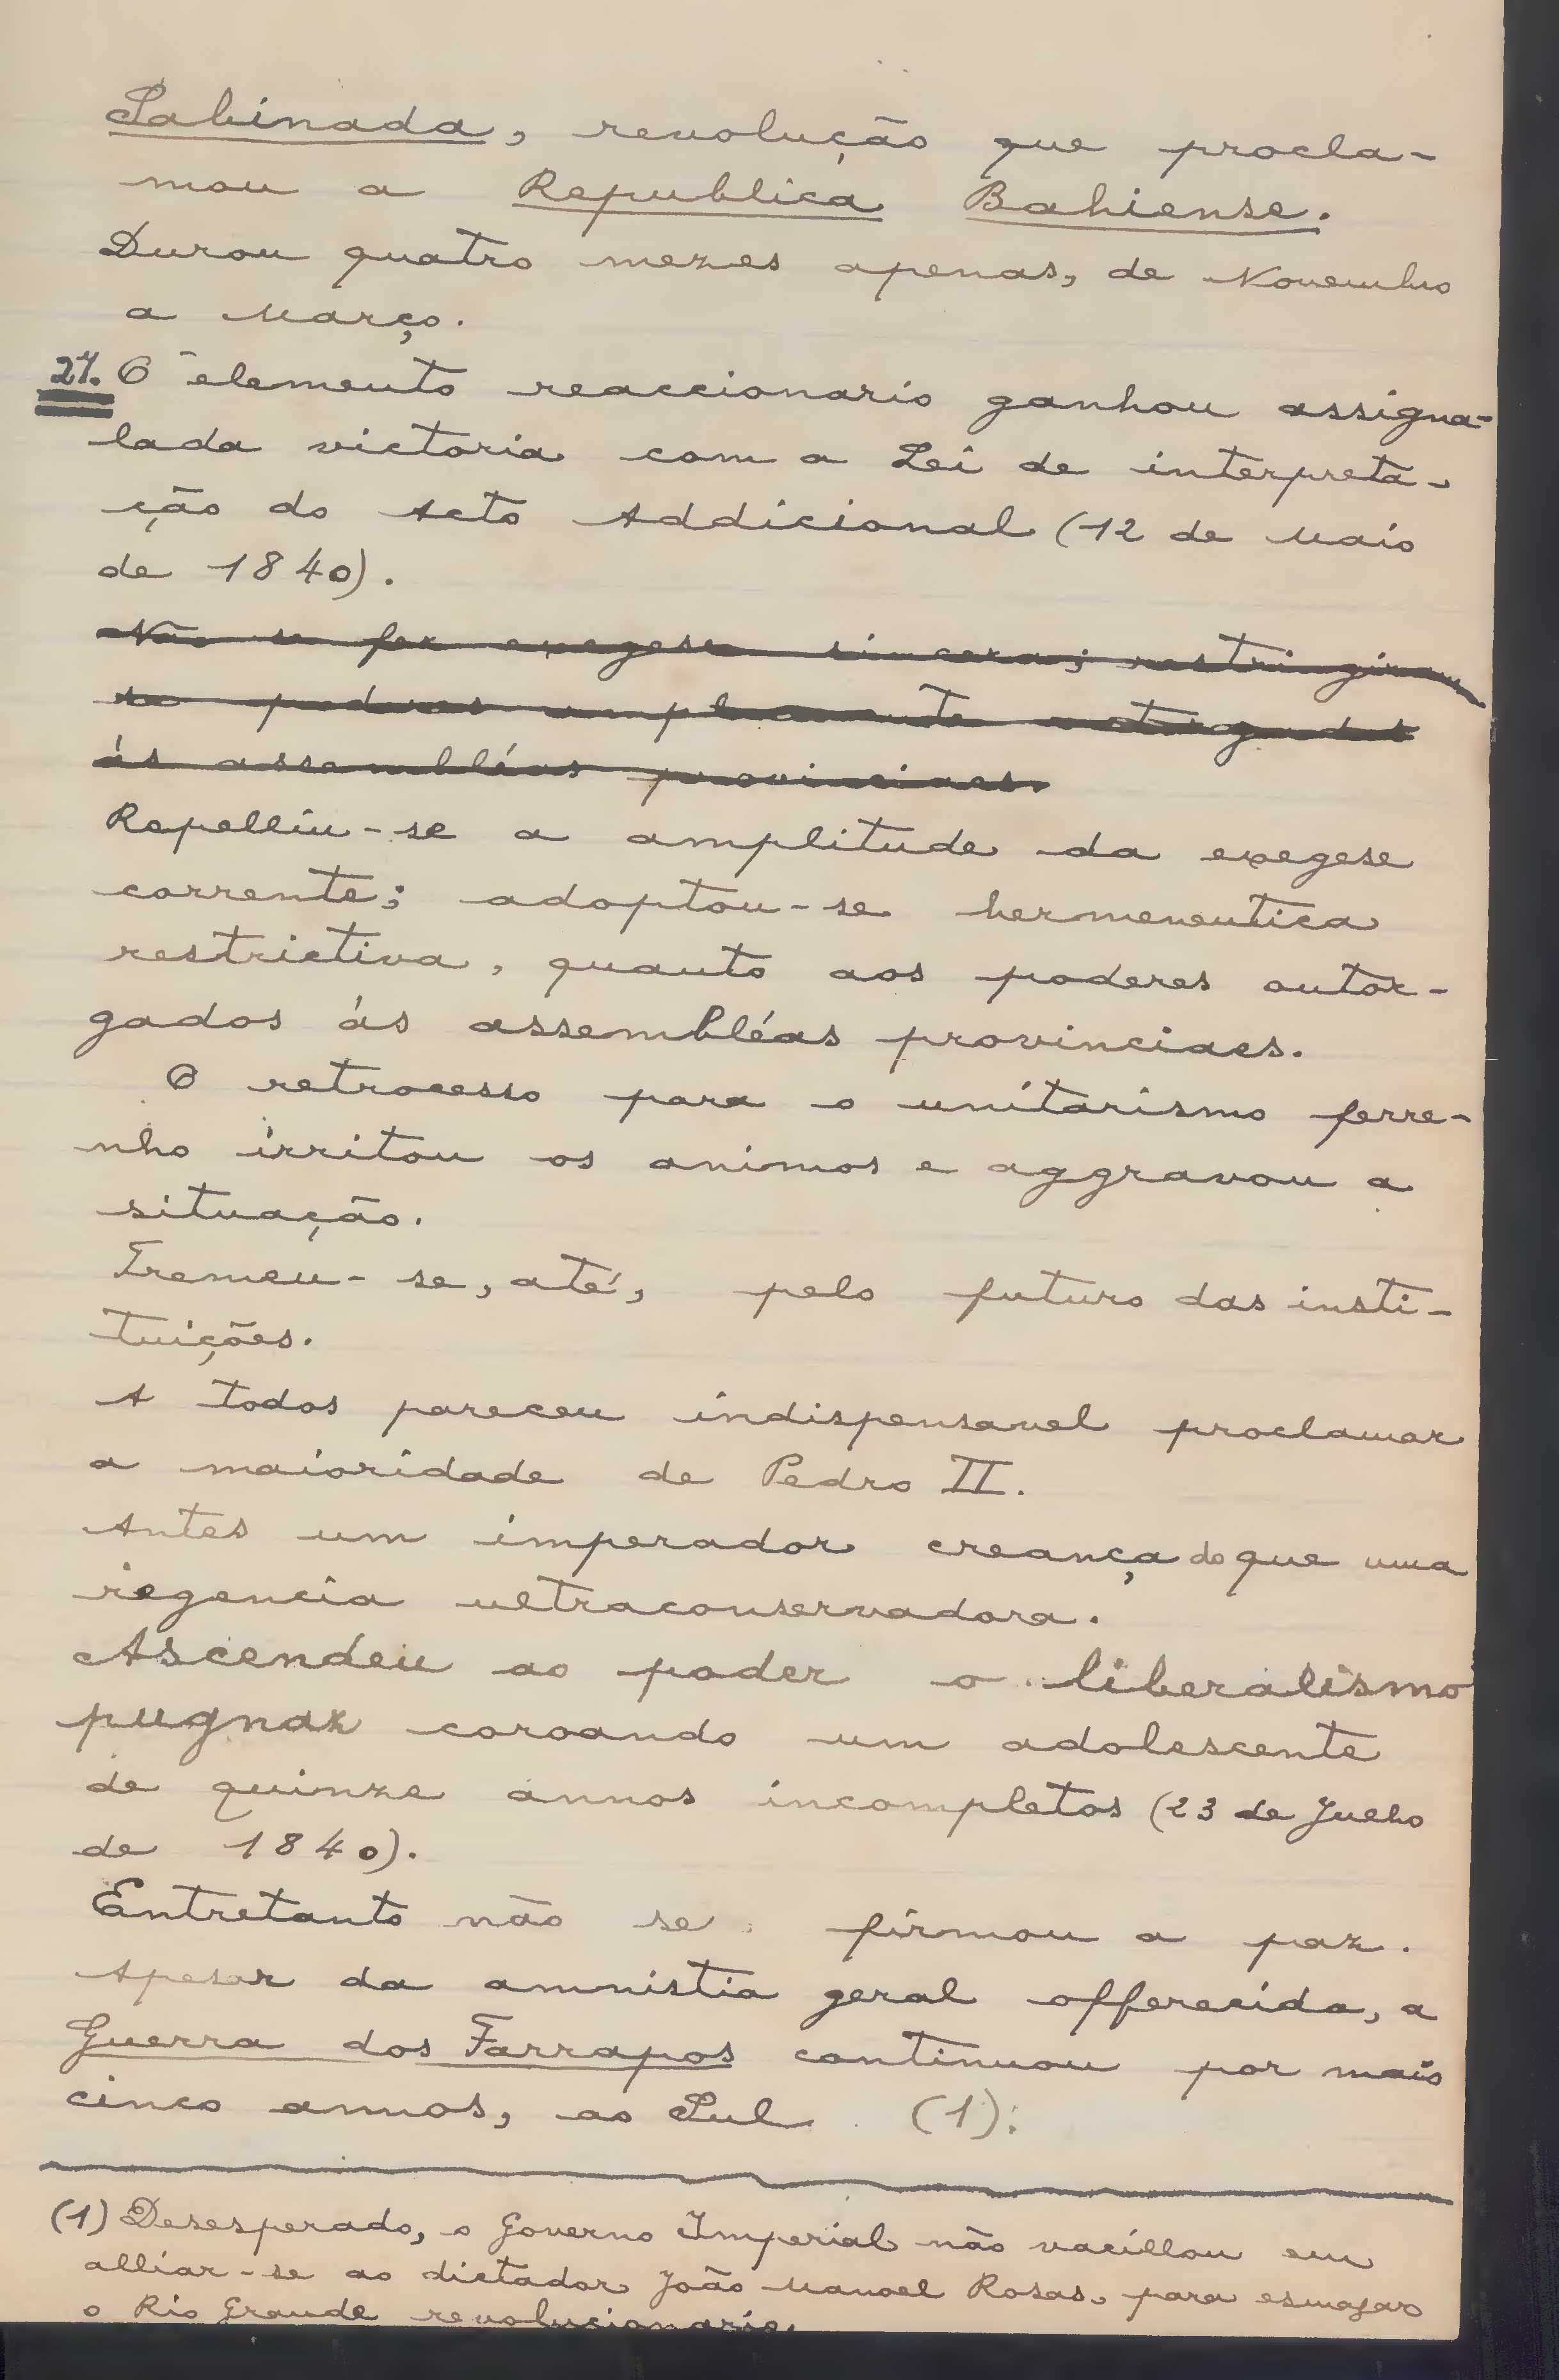 Sabinada, revolução que procla-
mou a Republica Bahiense.
Durou quatro mezes apenas, de Novembro
a Março.
27. O elemento reaccionario ganhou assigna-
lada victoria com a Lei de interpreta-
ção do Acto Addicional (12 de Maio
de 1840).
Não se fez exegese sincera; restringiram
se poderes amplamente outorgados
ás assembléas provinciaes.
Repelliu-se a amplitude da exegese
corrente; adoptou-se hermeneutica
restrictiva, quanto aos poderes outor-
gados ás assembléas provinciaes.
O retrocesso para o unitarismo ferre-
nho irritou os animos e aggravou a
situação.
Tremeu-se, até, pelo futuro das insti-
tuições.
A todos pareceu indispensavel proclamar
a maioridade de Pedro II.
Antes um imperador creança do que uma
regencia ultraconservadora.
Ascendeu ao poder o liberalismo
pugnaz coroando um adolescente
de quinze annos incompletos (23 de Julho
de 1840).
Entretanto não se firmou a paz.
Apesar da amnistia geral offerecida, a
Guerra dos Farrapos continuou por mais
cinco annos, ao Sul (1);
(1) Desesperado, o Governo Imperial não vacillou em
alliar-se ao dictador João Manoel Rosas, para esmagar
o Rio Grande revolucionario.